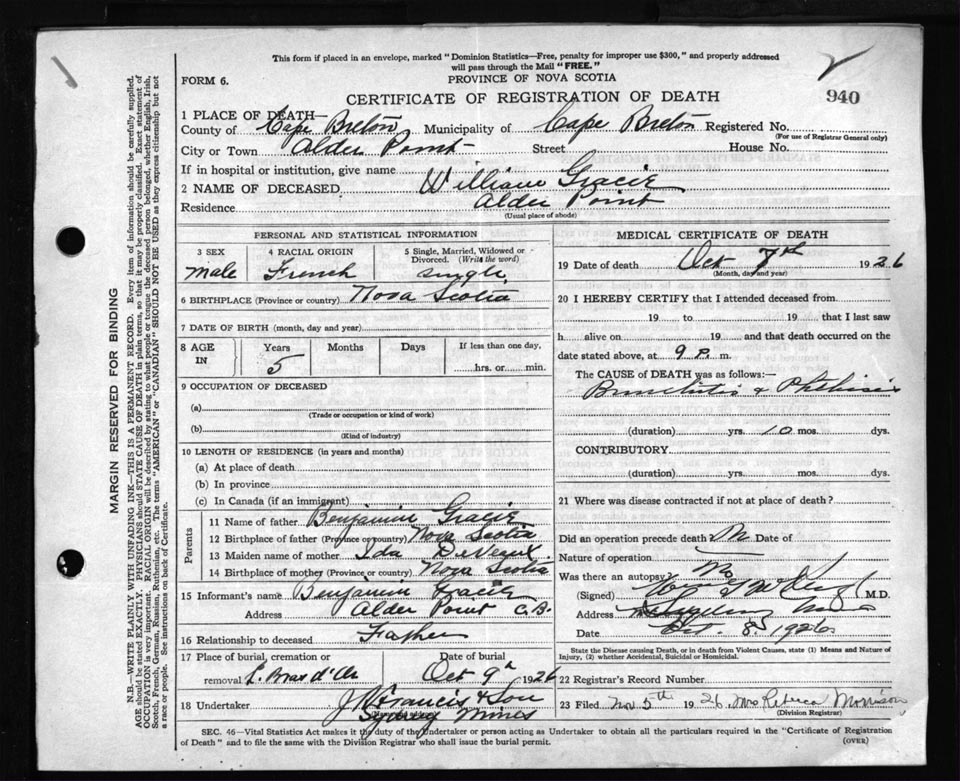 This form if placed in an envelope, marked "Dominion Statistics—Free, penalty for improper use $300," and properly addressed
will pass through the Mail "FREE."
FORM 6.
PROVINCE OF NOVA SCOTIA
CERTIFICATE OF REGISTRATION OF DEATH
940
1 PLACE OF DEATH—
County of Cape Breton Municipality of Cape Breton Registered No.
(For use of Registrar General only)
City or Town Alder Point Street House No.
If in hospital or institution, give name
2 NAME OF DECEASED William Gracie
Residence Alder Point
(Usual place of abode)
PERSONAL AND STATISTICAL INFORMATION
3 SEX 4 RACIAL ORIGIN 5 Single, Married, Widowed or Divorced. (Write the word)
male French single
6 BIRTHPLACE (Province or country) Nova Scotia
7 DATE OF BIRTH (month, day and year)
8 AGE IN Years Months Days If less than one day,
5 hrs. or min.
9 OCCUPATION OF DECEASED
(a)
(Trade or occupation or kind of work)
(b)
(Kind of industry)
10 LENGTH OF RESIDENCE (in years and months)
(a) At place of death
(b) In province
(c) In Canada (if an immigrant)
Parents
11 Name of father Benjamin Gracie
12 Birthplace of father (Province or country) Nova Scotia
13 Maiden name of mother Ida
14 Birthplace of mother (Province or country) Nova Scotia
15 Informant's name Benjamin Gracie
Address Alder Point C.B.
16 Relationship to deceased Father
17 Place of burial, cremation or removal L. Bras d'Or
Date of burial Oct 9 1926
18 Undertaker J W Francis & Son
Sydney Mines
MEDICAL CERTIFICATE OF DEATH
19 Date of death Oct 7th 1926
(Month, day and year)
20 I HEREBY CERTIFY that I attended deceased from
19 to 19 that I last saw
h alive on 19 and that death occurred on the
date stated above, at 9 P. m.
The CAUSE of DEATH was as follows:—
Bronchitis & Phthisis
(duration) yrs. 10 mos. dys.
CONTRIBUTORY
(duration) yrs. mos. dys.
21 Where was disease contracted if not at place of death?
Did an operation precede death? No Date of
Nature of operation
Was there an autopsy? No
(Signed) M.D.
Address
Date Oct. 8. 1926
State the Disease causing Death, or in death from Violent Causes, state (1) Means and Nature of
Injury, (2) whether Accidental, Suicidal or Homicidal.
22 Registrar's Record Number
23 Filed Nov 5th 1926 Mrs Rebecca Morrison
(Division Registrar)
SEC. 46—Vital Statistics Act makes it the duty of the Undertaker or person acting as Undertaker to obtain all the particulars required in the "Certificate of Registration
of Death" and to file the same with the Division Registrar who shall issue the burial permit.
(OVER)
MARGIN RESERVED FOR BINDING
N.B.—WRITE PLAINLY WITH UNFADING INK—THIS IS A PERMANENT RECORD. Every item of information should be carefully supplied.
AGE should be stated EXACTLY. PHYSICIANS should STATE CAUSE OF DEATH in plain terms, so that it may be properly classified. Exact statement of
OCCUPATION is very important. RACIAL ORIGIN will be described by stating to what people or tongue the deceased person belonged, whether English, Irish,
Scotch, French, German, Russian, Ruthenian, etc. The terms "AMERICAN" or "CANADIAN" SHOULD NOT BE USED as they express citizenship but not
a race or people. See instructions on back of Certificate.